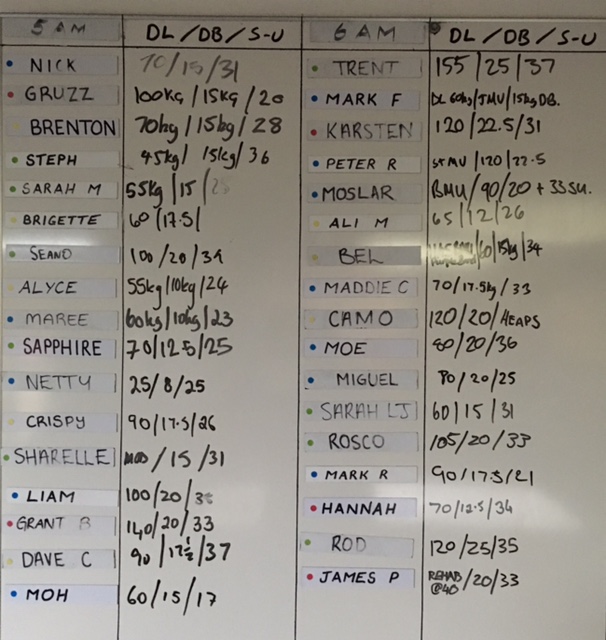 5 AM DL / DB / S-U
NICK 70/15/31
GRUZZ 100KG / 15KG / 20
BRENTON 70kg / 15kg / 28
STEPH 45kg / 15kg / 36
SARAH M 55kg / 15 /
BRIGETTE 60 / 17.5 /
SEANO 100 / 20 / 34
ALYCE 55kg / 10kg / 24
MAREE 60kg / 10kg / 23
SAPPHIRE 70 / 12.5 / 25
NETTY 25 / 8 / 25
CRISPY 90 / 17.5 / 26
SHARELLE / 15 / 31
LIAM 100 / 20 /
GRANT B 140 / 20 / 33
DAVE C 90 / 17½ / 37
MOH 60 / 15 / 17
6 AM DL / DB / S-U
TRENT 155 / 25 / 37
MARK F DL 60kg / / 15kg DB.
KARSTEN 120 / 22.5 / 31
PETER R / 120 / 22.5
MOSLAR BMU / 90/20 + 33 SU.
ALI M 65 / 12 / 26
BEL / 60 / 15kg / 34
MADDIE C 70 / 17.5kg / 33
CAMO 120 / 20 / HEAPS
MOE 80 / 20 / 36
MIGUEL 80 / 20 / 25
SARAH LJ 60 / 15 / 31
ROSCO 105 / 20 / 33
MARK R 90 / 17.5 / 21
HANNAH 70 / 12.5 / 34
ROD 120 / 25 / 35
JAMES P REHAB @40 / 20 / 33